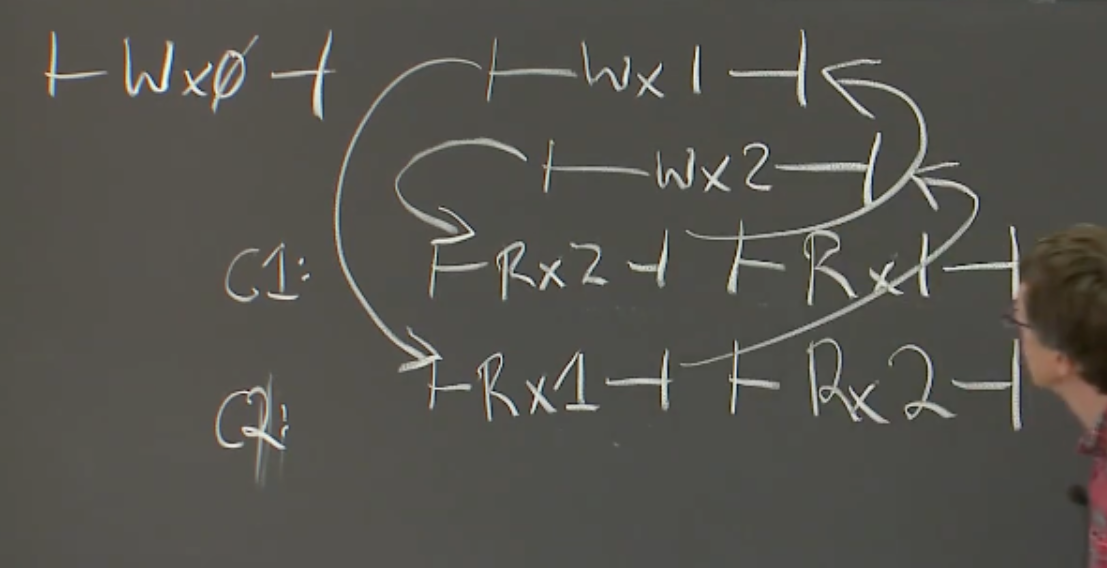 Wxø Wx1
Wx2
C1: Rx2 Rx1
C2: Rx1 Rx2